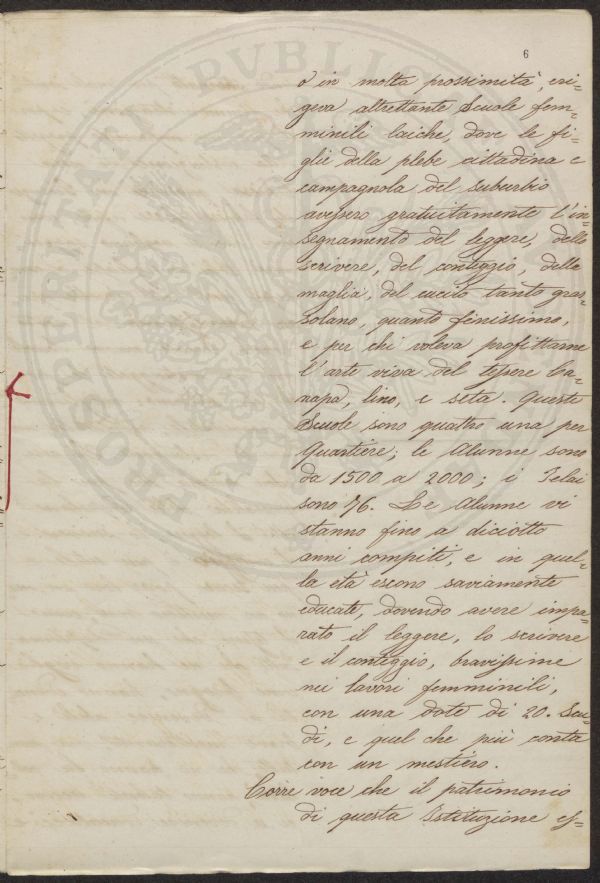 6
o in molta prossimità, eri=
geva altrettante Scuole fem=
minili laiche, dove le fi=
glie della plebe cittadina e
campagnola del suburbio
avessero gratuitamente l'in=
segnamento del leggere, dello
scrivere, del conteggio, delle
maglia, del cucito tanto gros=
solano, quanto finissimo,
e per chi voleva profittarne
l'arte viva del tessere ca=
napa, lino, e seta. Queste
Scuole sono quattro una per
Quartiere; le Alunne sono
da 1500 a 2000; i Telai
sono 76. Le Alunne vi
stanno fino a diciotto
anni compiti, e in quel=
la età escono saviamente
educate, dovendo avere impa=
rato il leggere, lo scrivere
e il conteggio, bravissime
nei lavori femminili,
con una dote di 20. Scu=
di, e quel che più conta
con un mestiero.
Corre voce che il patrimonio
di questa Istituzione es=
PROSPERITATI PVBLIC